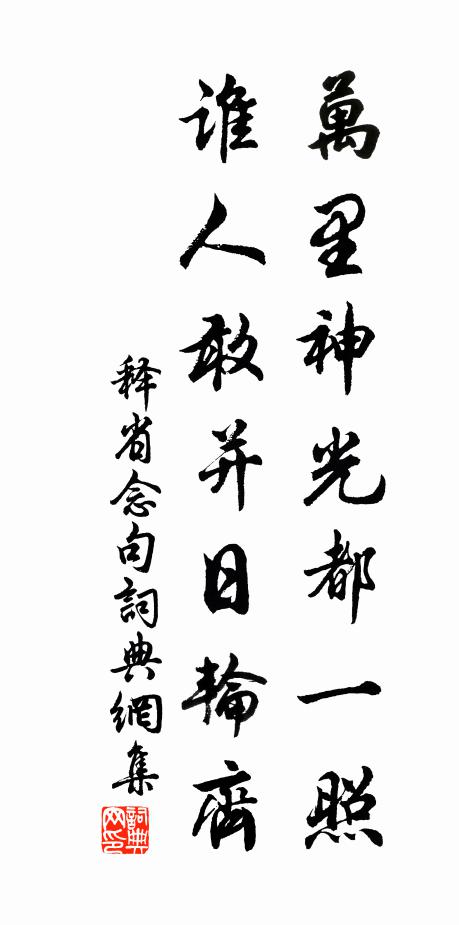 萬里神光都一照
誰人敢并日輪齊
释省念句詞典網集
詞典網印